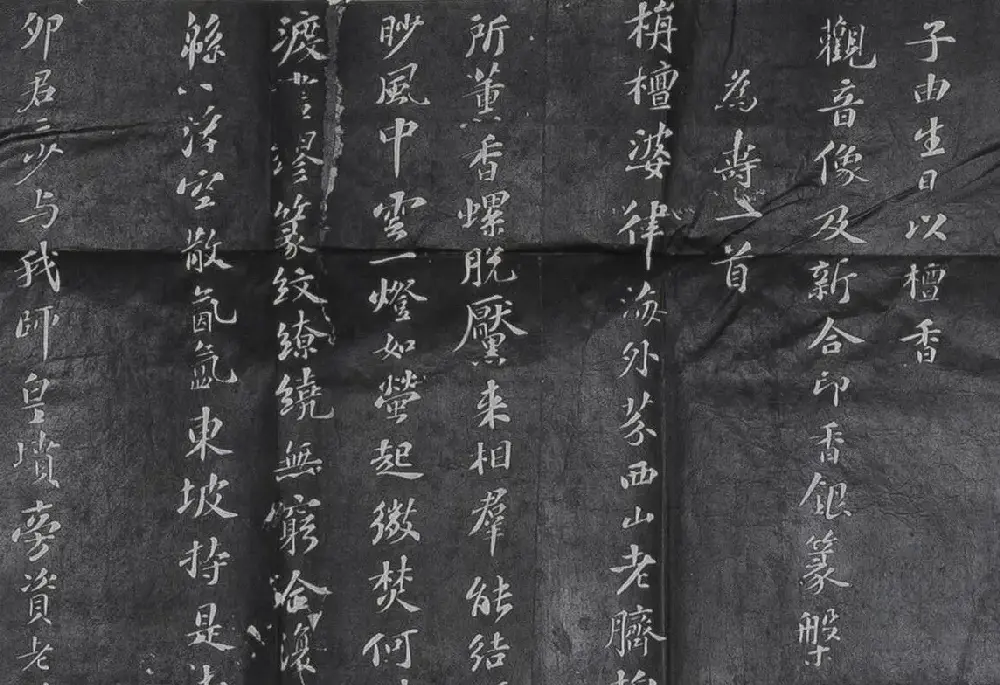 子由生日以檀香
觀音像及新合印香銀篆槃
為壽一首
栴檀婆律海外芬西山老臍
所薰香螺脫黶来相羣能結
眇風中雲一燈如螢起微焚何
渡盡繆篆紋繚繞無窮合復
緜〻浮空散氤氳東坡持是
卯君〻少与我師皇墳旁資老